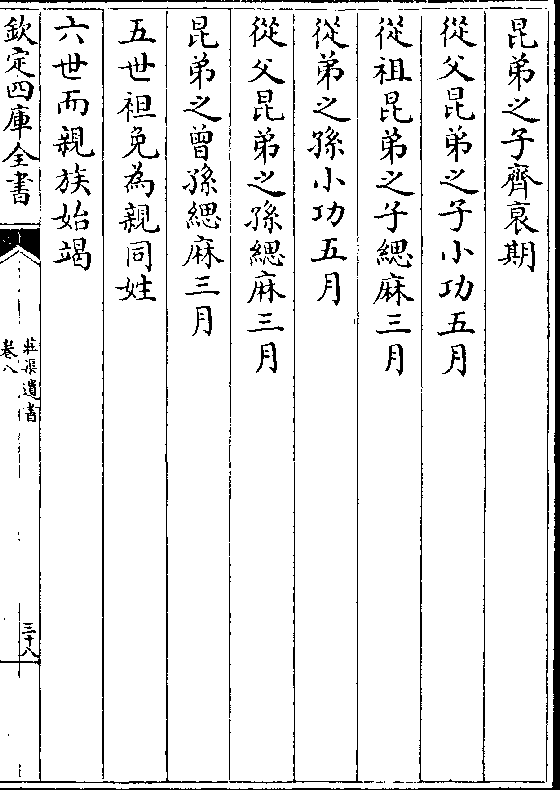 昆弟之子齊衰期
從父昆弟之子小功五月
從祖昆弟之子緦麻三月
從弟之孫小功五月
從父昆弟之孫緦麻三月
昆弟之曾孫緦麻三月
五世袒免為親同姓
六世而親族始竭
欽定四庫全書
莊渠遺書
卷八
三十八